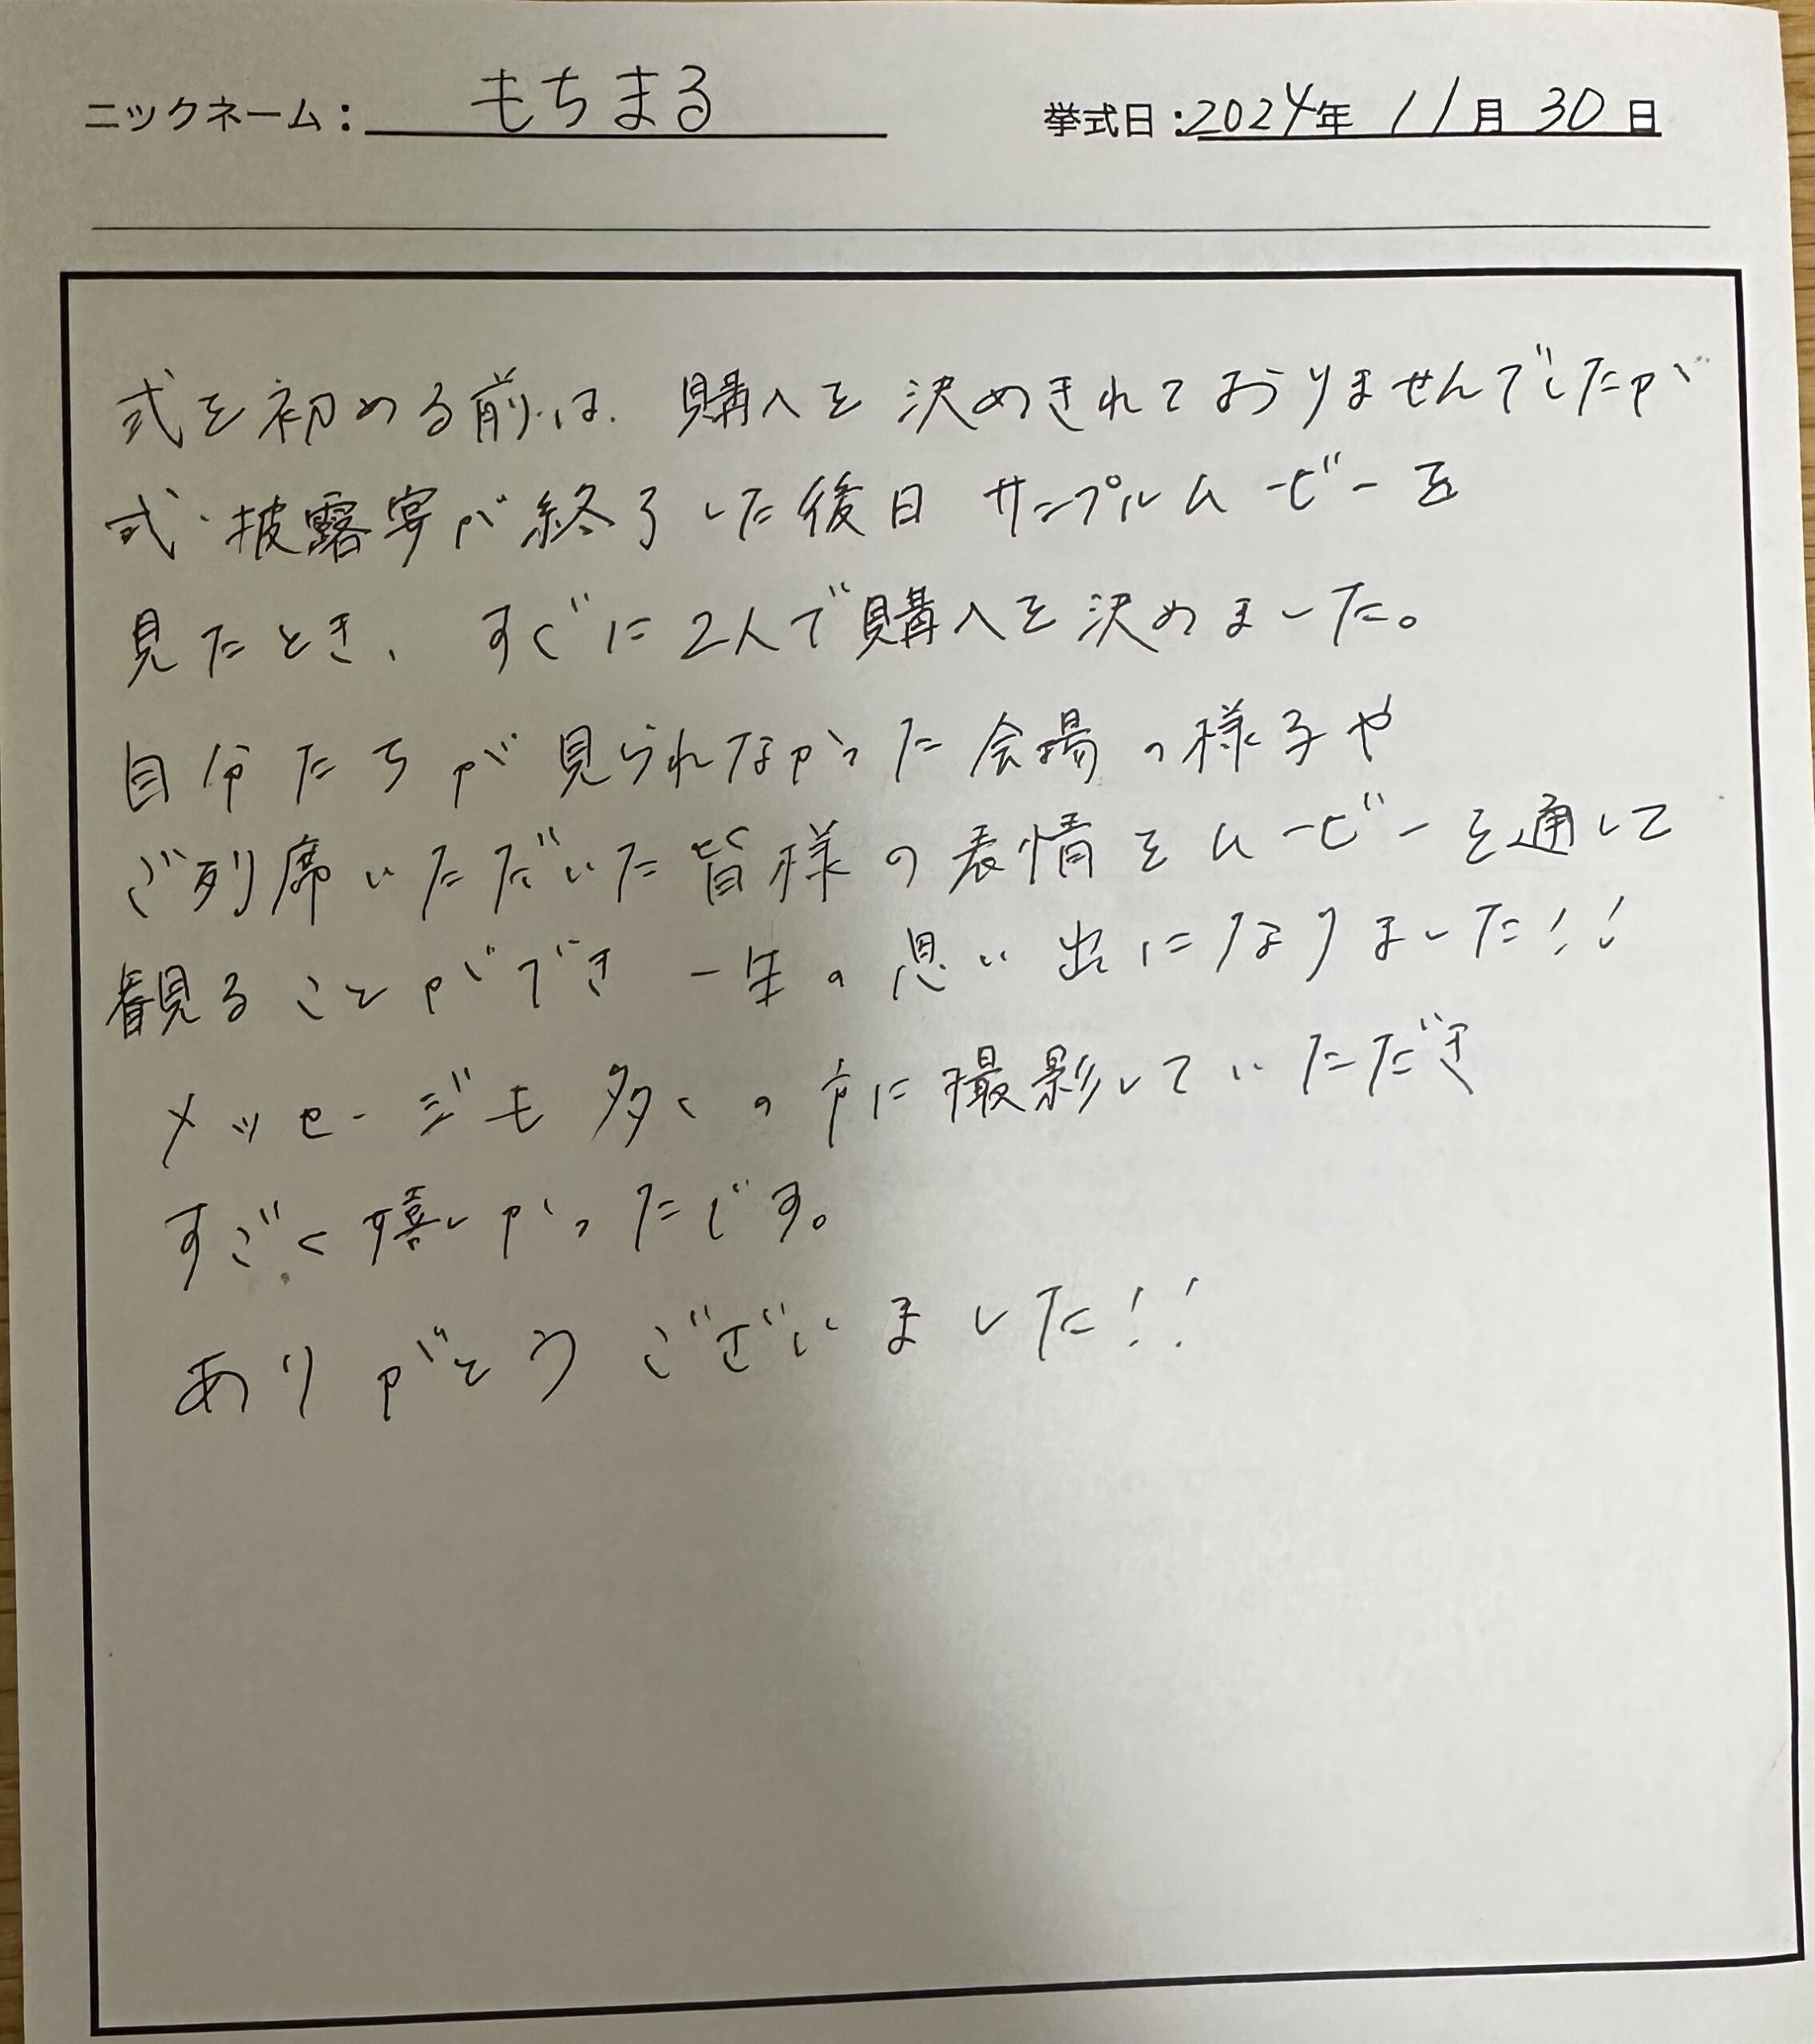 ニックネーム： もちまる
挙式日：2024年 11月 30日
式を初める前は、購入を決めきれておりませんでしたが
式・披露宴が終了した後日 サンプルムービーを
見たとき、すぐに2人で購入を決めました。
自分たちが見られなかった会場の様子や
ご列席いただいた皆様の表情をムービーを通して
観ることができ 一生の思い出になりました!!
メッセージも多くの方に撮影していただき
すごく嬉しかったです。
ありがとうございました!!